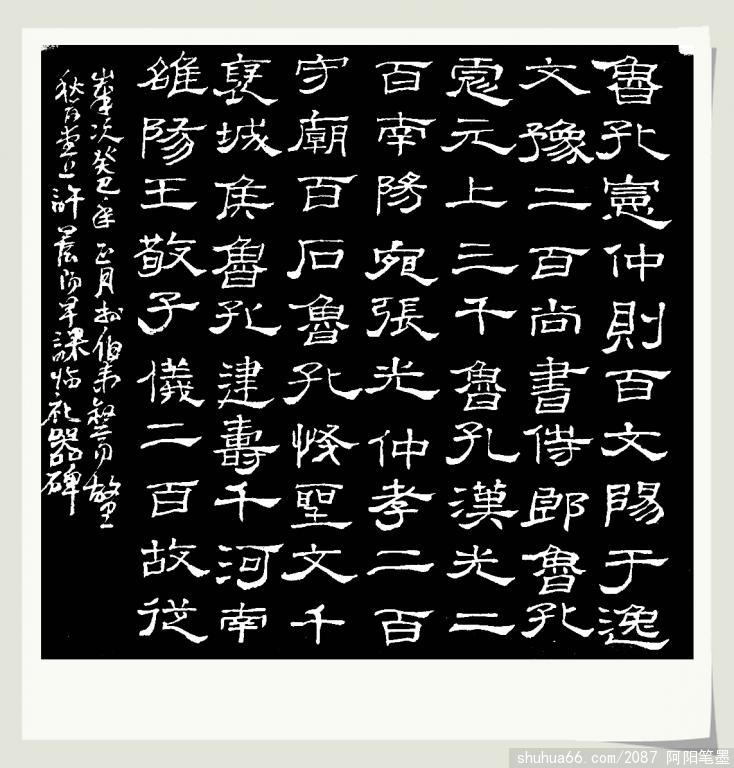 魯孔憲仲則百文陽于逸
文豫二百尚書侍郎魯孔
彪元上三千魯孔漢光二
百南陽宛張光仲孝二百
守廟百石魯孔恢聖文千
褒城侯魯孔建壽千河南
雒陽王敬子儀二百故從
歲次癸巳年正月於伯
堂主許晨陽早課臨礼器碑
shuhua66.com/2087 阿阳笔墨